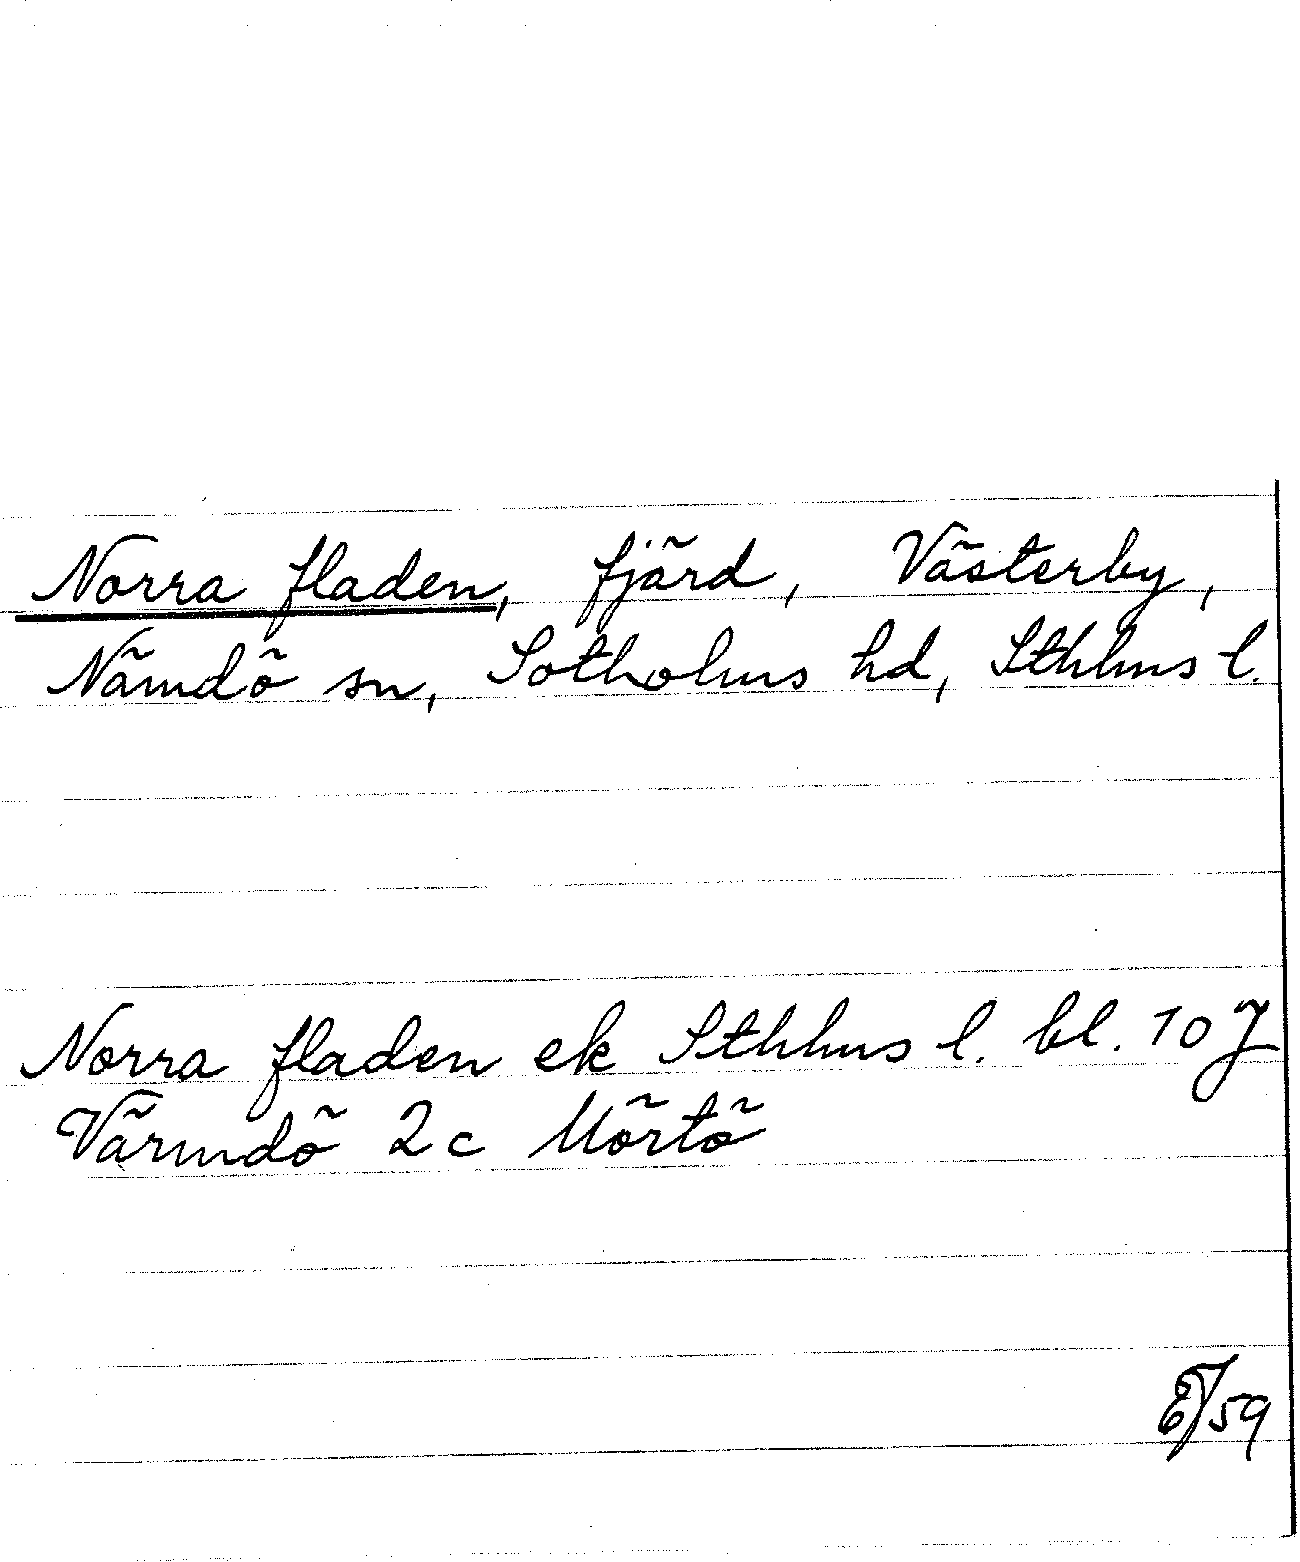 Norra fladen, fjärd, Västerby,
Nämdö sn, Sotholms hd, Sthlms l.
Norra fladen ek Sthlms l. bl. 10 J
Värmdö 2c Mörtö
EJ/59